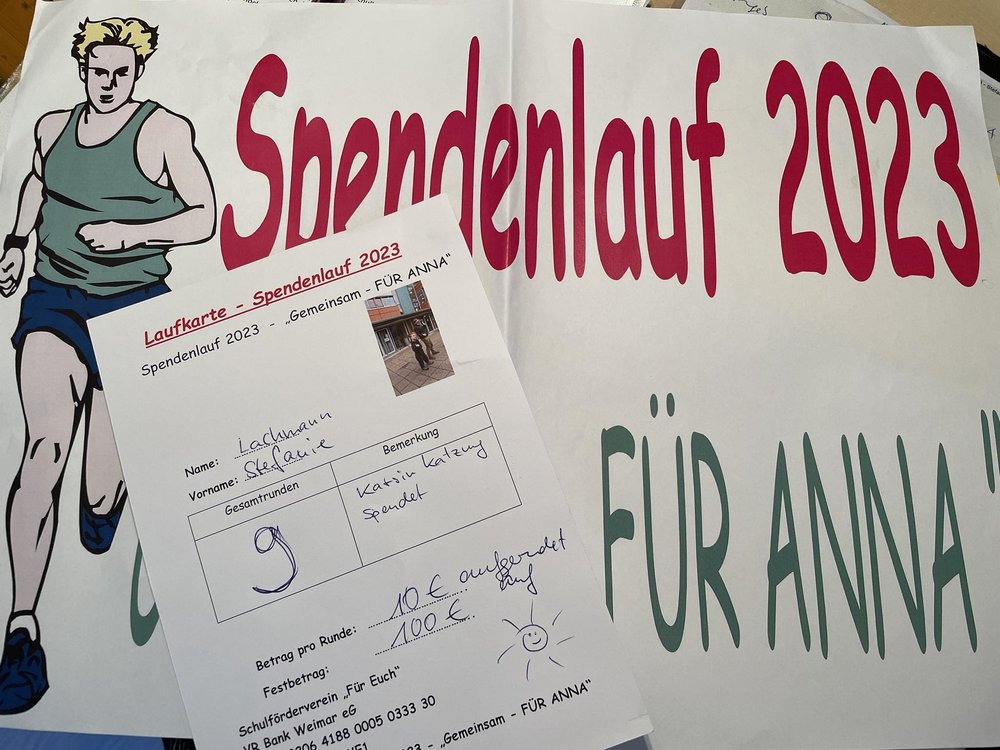 Spendenlauf 2023
FÜR ANNA"
Laufkarte - Spendenlauf 2023
Spendenlauf 2023 - „Gemeinsam - FÜR ANNA“
Name: Lachmann
Vorname: Stefanie
Gesamtrunden
Bemerkung
9
Katrin Katzung
spendet
Betrag pro Runde: 10 € aufgerundet
auf
Festbetrag: 100 €
Schulförderverein „Für Euch“
VR Bank Weimar eG
0206 4188 0005 0333 30
2023 - „Gemeinsam - FÜR ANNA“